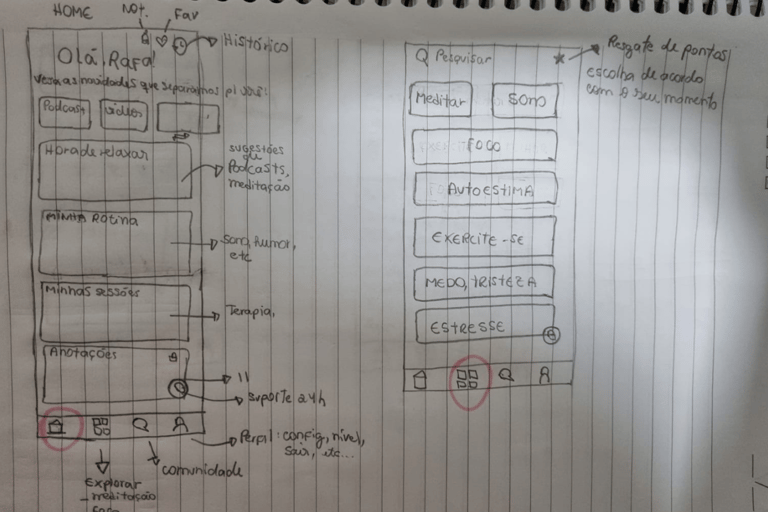 HOME
Not.
Fav
Histórico
Olá, Rafa!
Veja as novidades que separamos p/ você:
Podcasts
Vídeos
Hora de relaxar
sugestões
de
Podcasts,
meditação
Minha Rotina
Sono, humor,
etc
Minhas sessões
Terapia,
Anotações
11
suporte 24h
Perfil: config, nível,
sair, etc...
comunidade
Explorar
- meditação
Pesquisar
Resgate de pontos
escolha de acordo
com o seu momento
Meditar
SONO
FOCO
AUTOESTIMA
EXERCITE-SE
MEDO, TRISTEZA
ESTRESSE